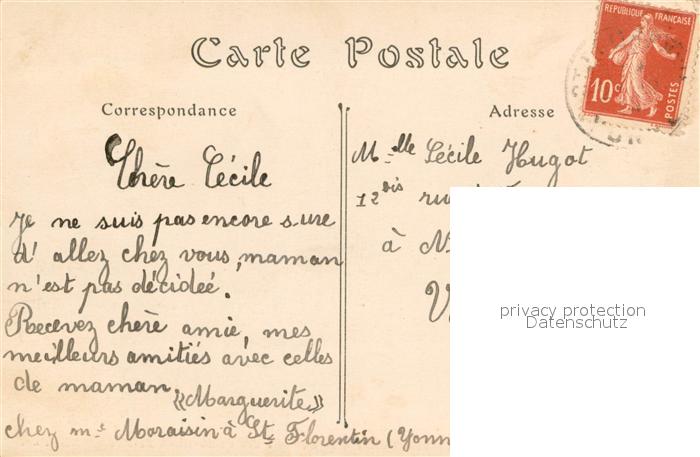 Carte Postale
REPUBLIQUE FRANÇAISE
10c
POSTES
Correspondance
Adresse
Chère Cécile
Je ne suis pas encore sure
d'allez chez vous, maman
n'est pas décideé.
Recevez chère amie, mes
meilleurs amitiés avec celles
de maman.
«Marguerite»
chez me Moraisin à St Florentin (Yonn
Melle Cécile Hugot
12 bis
à N
V
privacy protection
Datenschutz